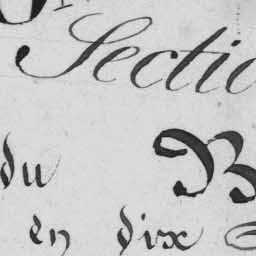 Sectio
du B
en dix